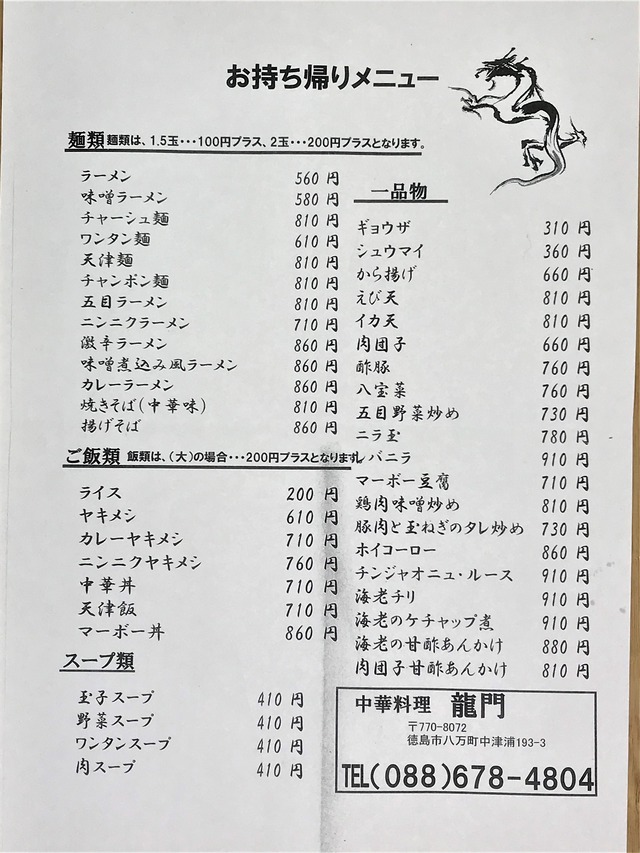 お持ち帰りメニュー
麺類 麺類は、1.5玉・・・100円プラス、2玉・・・200円プラスとなります。
ラーメン 560 円
味噌ラーメン 580 円
チャーシュ麺 810 円
ワンタン麺 610 円
天津麺 810 円
チャンポン麺 810 円
五目ラーメン 810 円
ニンニクラーメン 710 円
激辛ラーメン 860 円
味噌煮込み風ラーメン 860 円
カレーラーメン 860 円
焼きそば(中華味) 810 円
揚げそば 860 円
ご飯類 飯類は、(大)の場合・・・200円プラスとなります。
ライス 200 円
ヤキメシ 610 円
カレーヤキメシ 710 円
ニンニクヤキメシ 760 円
中華丼 710 円
天津飯 710 円
マーボー丼 860 円
スープ類
玉子スープ 410 円
野菜スープ 410 円
ワンタンスープ 410 円
肉スープ 410 円
一品物
ギョウザ 310 円
シュウマイ 360 円
から揚げ 660 円
えび天 810 円
イカ天 810 円
肉団子 660 円
酢豚 760 円
八宝菜 760 円
五目野菜炒め 730 円
ニラ玉 780 円
レバニラ 910 円
マーボー豆腐 710 円
鶏肉味噌炒め 810 円
豚肉と玉ねぎのタレ炒め 730 円
ホイコーロー 860 円
チンジャオニュ・ルース 910 円
海老チリ 910 円
海老のケチャップ煮 910 円
海老の甘酢あんかけ 880 円
肉団子甘酢あんかけ 810 円
中華料理 龍門
〒770-8072
徳島市八万町中津浦193-3
TEL(088)678-4804